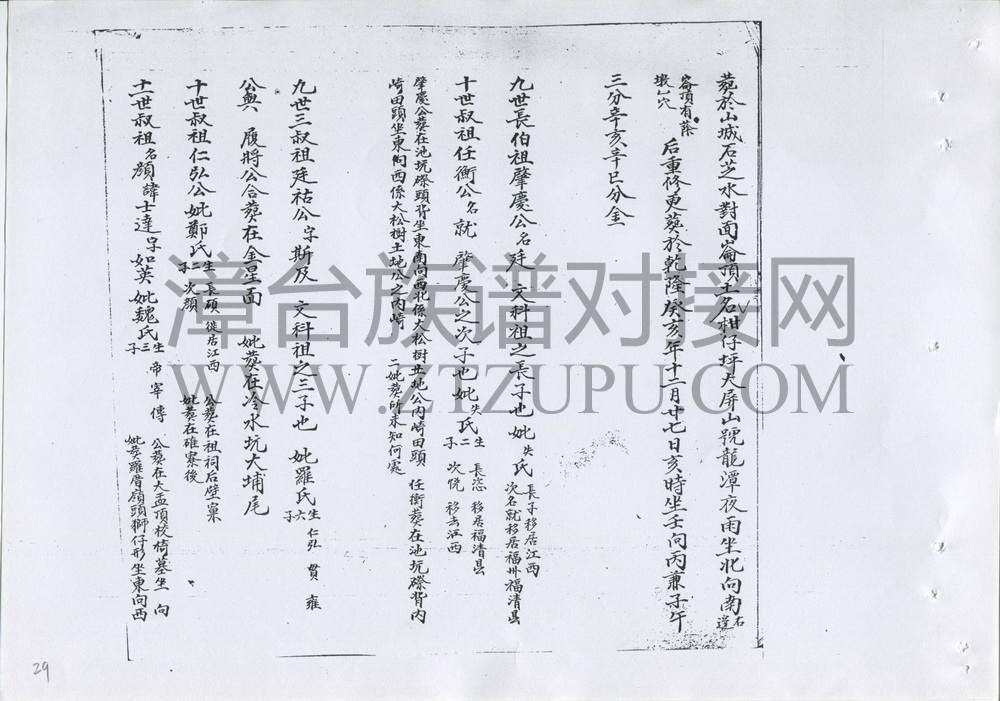 葬於山城石芝水對面崙頂土名柑仔坪大屏山號龍潭夜雨坐北向南右邊
崙頂有蔭墩乙穴 后重修更葬於乾隆癸亥年十二月廿七日亥時坐壬向丙兼子午
三分辛亥辛巳分金
九世長伯祖肇慶公名廷 文科祖之長子也 妣失氏 長子移居江西 次名就移居福州福清县
十世叔祖任衡公名就 肇慶公之次子也 妣失氏 生二子 長恣 移居福清县 次悅 移去江西
肇慶公葬在池坑際頭背坐東南向西北係大松樹土地公內崎田頭 任衡葬在池坑際背內
崎田頭坐東向西係大松樹土地公之內崎 二妣葬所未知何處
九世三叔祖廷祜公字斯及 文科祖之三子也 妣羅氏 生六子 仁弘 貫 雍
公與 履將公合葬在金星面 妣葬在冷水坑大埔尾
十世叔祖仁弘公妣鄭氏 生二子 長碩 徙居江西 次顏 公葬在祖祠后壁窠 妣葬在碓寮後
十一世叔祖名顏諱士達字如英 妣魏氏 生三子 帝 宰 傳 公葬在大盂頂校椅墓坐 向 妣葬羅背嶺頭獅仔形坐東向西
漳台族谱对接网
WWW.ZTZUPU.COM
29